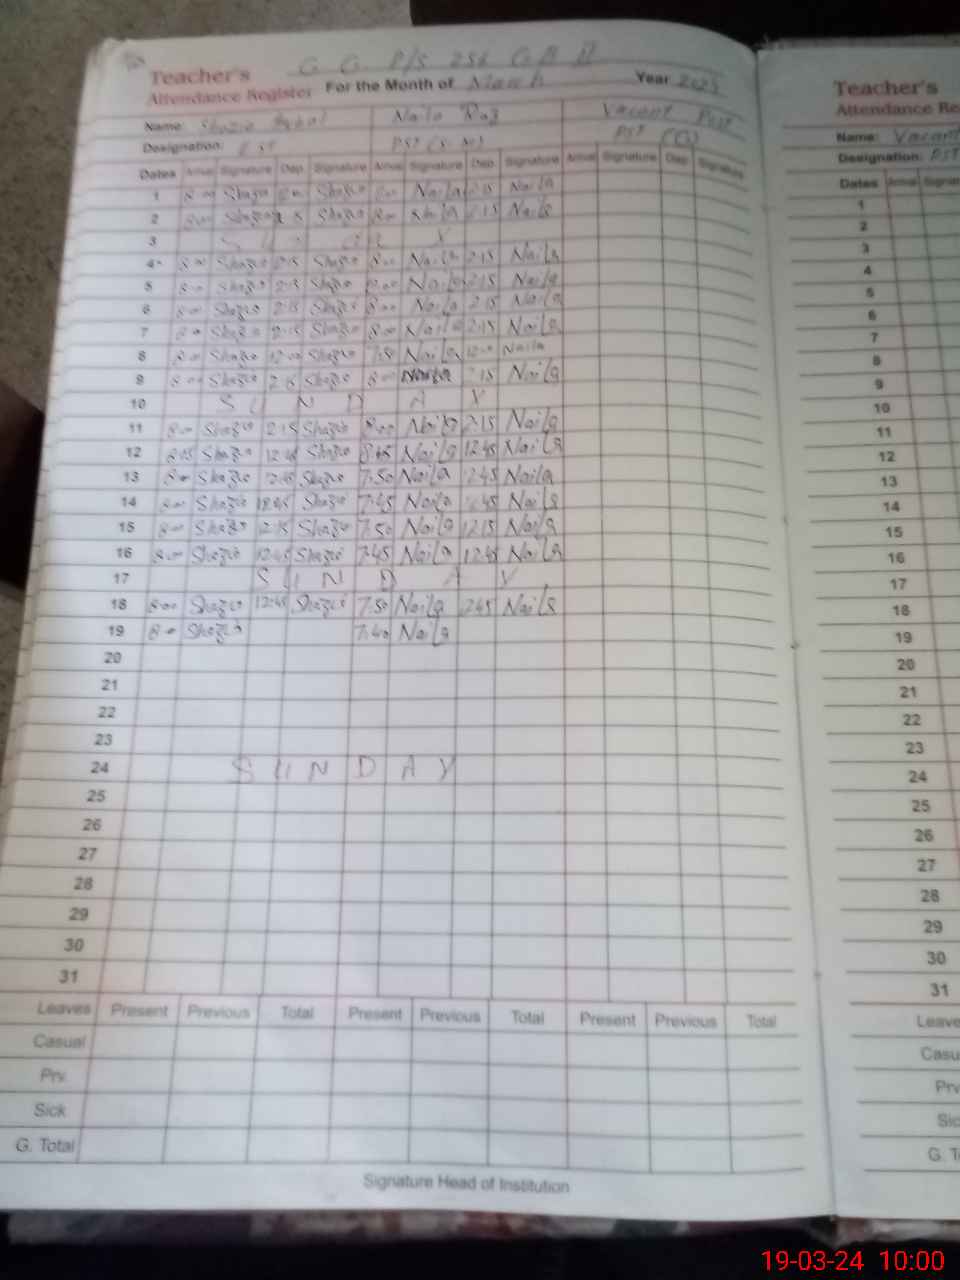 G G P/S 256 G B II
Teacher's
Attendance Register For the Month of March Year
Name: Shazia Naila Vacant Post
Designation: PST PST
Dates Arrival Signature Dep. Signature Arrival Signature Dep. Signature Arrival Signature Dep. Signature
1 8:00 Shazia Shazia Naila 2:15 Naila
2 8:00 Shazia Shazia 8:00 Naila 2:15 Naila
3 S U Y
4 8:00 Shazia 2:15 Shazia 8:00 Naila 2:15 Naila
5 8:00 Shazia 2:15 Shazia 8:00 Naila 2:15 Naila
6 8:00 Shazia 2:15 Shazia 8:00 Naila 2:15 Naila
7 8:00 Shazia 2:15 Shazia 8:00 Naila 2:15 Naila
8 8:00 Shazia 12:00 Shazia Naila 12:00 Naila
9 8:00 Shazia 2:15 Shazia 8:00 Naila 2:15 Naila
10 S U N D A Y
11 8:00 Shazia 2:15 Shazia 8:00 Naila 2:15 Naila
12 Shazia 12:45 Shazia 8:45 Naila 12:45 Naila
13 8:00 Shazia 12:45 Shazia 7:50 Naila 12:45 Naila
14 8:00 Shazia Shazia 7:45 Naila Naila
15 8:00 Shazia 12:15 Shazia 7:50 Naila 12:15 Naila
16 8:00 Shazia 12:45 Shazia 7:45 Naila 12:45 Naila
17 S U N D A Y
18 8:00 Shazia 12:45 Shazia 7:50 Naila 1245 Naila
19 8:00 Shazia 7:40 Naila
20
21
22
23
24 S U N D A Y
25
26
27
28
29
30
31
Leaves Present Previous Total Present Previous Total Present Previous Total
Casual
Prv.
Sick
G. Total
Signature Head of Institution
Teacher's
Attendance Re
Name: Vacant
Designation: PST
Dates Arrival
1
2
3
4
5
6
7
8
9
10
11
12
13
14
15
16
17
18
19
20
21
22
23
24
25
26
27
28
29
30
31
Leave
Casu
Prv
Sic
G. T
19-03-24 10:00